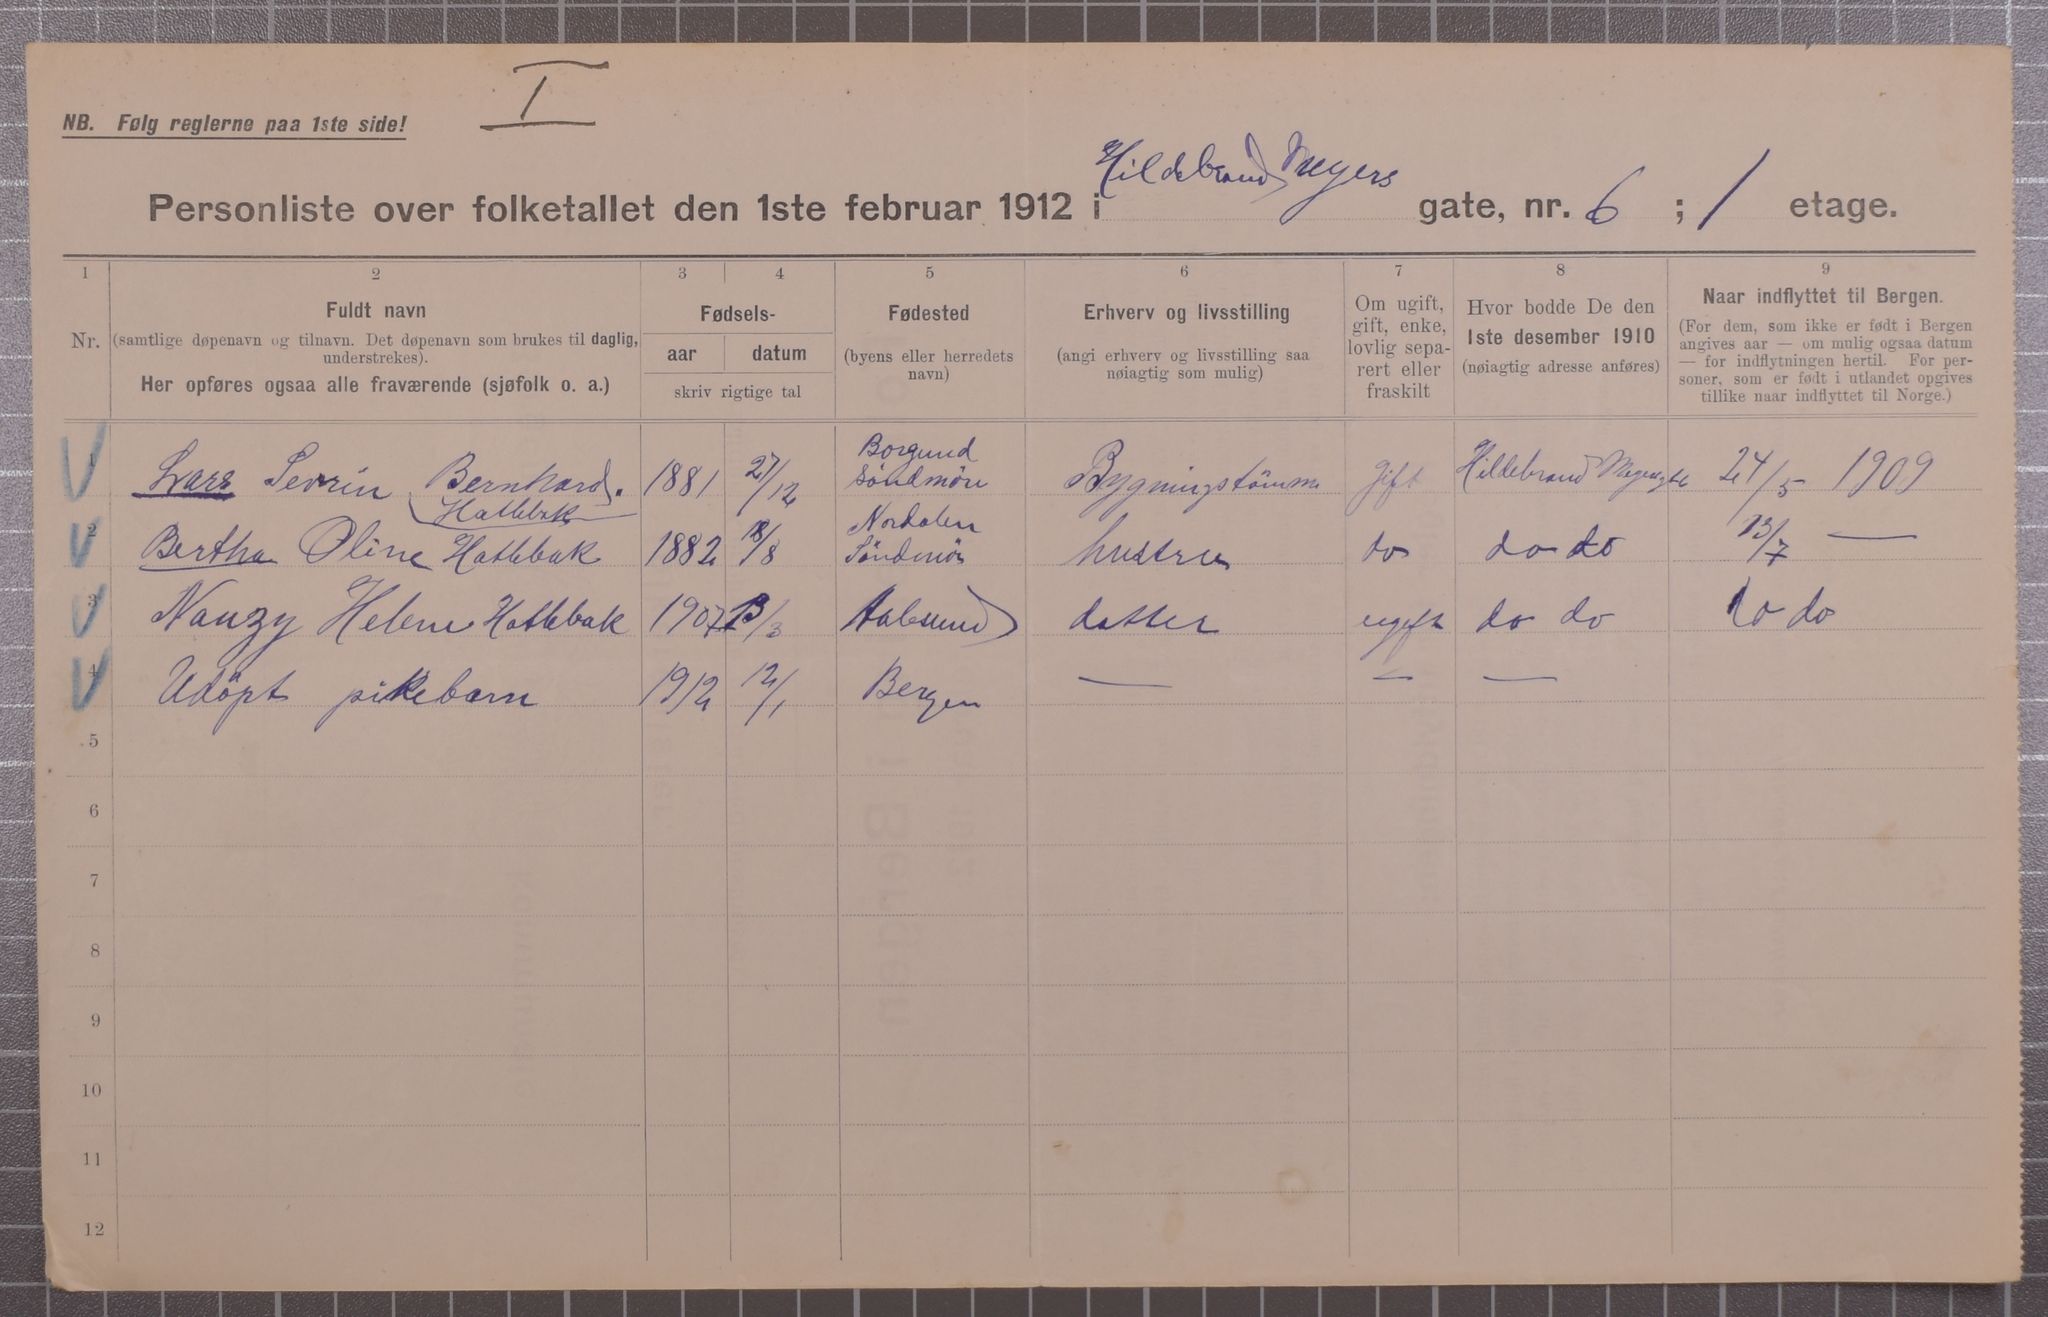 I
NB. Følg reglerne paa 1ste side!
Personliste over folketallet den 1ste februar 1912 i Hildebrand Meyers gate, nr. 6 ; 1 etage.
1 2 3 4 5 6 7 8 9
Nr.
Fuldt navn
(samtlige døpenavn og tilnavn. Det døpenavn som brukes til daglig,
understrekes).
Her opføres ogsaa alle fraværende (sjøfolk o. a.)
Fødsels-
aar datum
skriv rigtige tal
Fødested
(byens eller herredets
navn)
Erhverv og livsstilling
(angi erhverv og livsstilling saa
nøiagtig som mulig)
Om ugift,
gift, enke,
lovlig sepa-
rert eller
fraskilt
Hvor bodde De den
1ste desember 1910
(nøiagtig adresse anføres)
Naar indflyttet til Bergen.
(For dem, som ikke er født i Bergen
angives aar — om mulig ogsaa datum
— for indflytningen hertil. For per-
soner, som er født i utlandet opgives
tillike naar indflyttet til Norge.)
1 Lars Sevrin Bernhard. Hatlebak 1881 27/12 Borgund Søndmör Bygningstömm gift Hildebrand 24/5 1909
2 Bertha Oline Hatlebak 1882 18/8 Nordalen Söndmör hustru do do do 13/7 —
3 Nanzy Helene Hatlebak 1907 13/3 Aalesund datter ugift do do do do
4 Udöpt pikebarn 1912 12/1 Bergen — — —
5
6
7
8
9
10
11
12